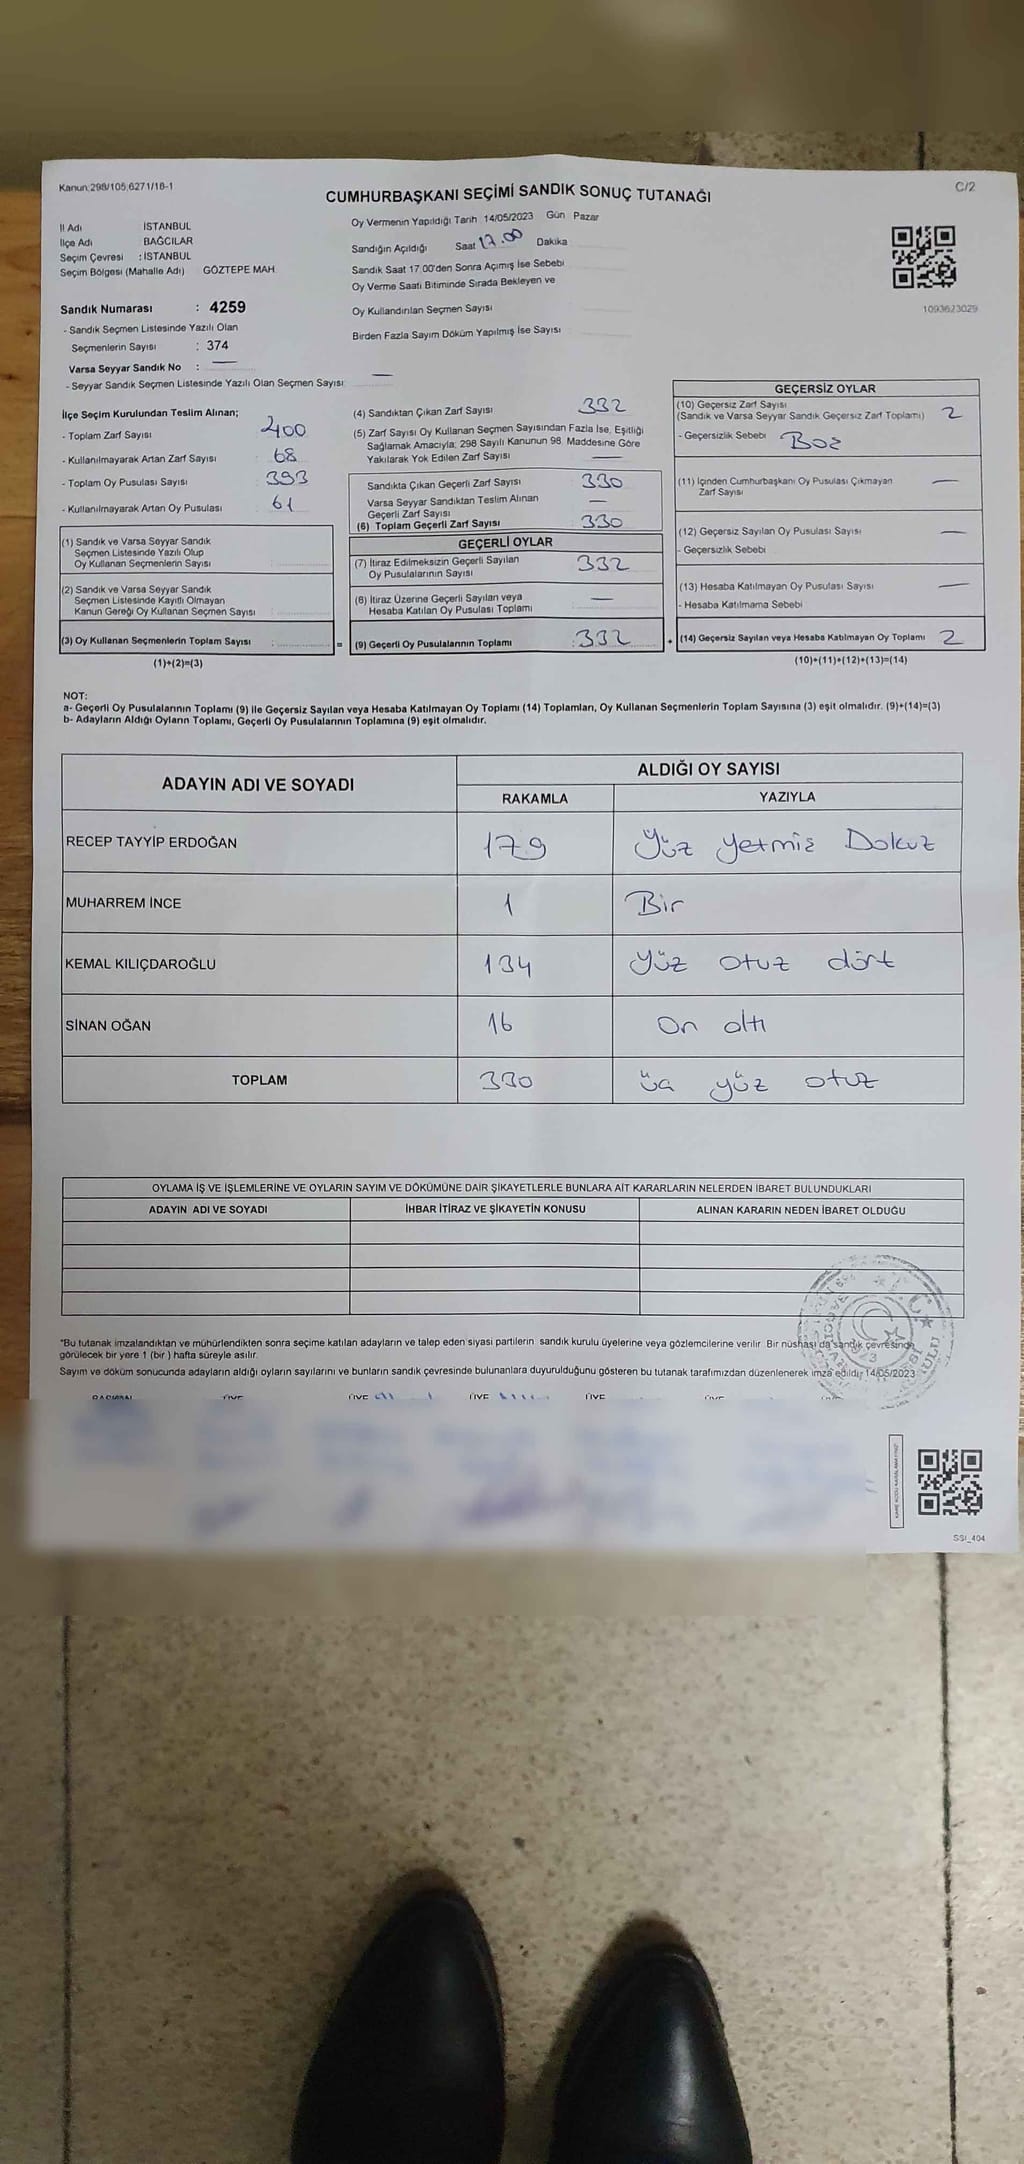 Kanun:298/105,6271/16-1
C/2
CUMHURBAŞKANI SEÇİMİ SANDIK SONUÇ TUTANAĞI
İl Adı İSTANBUL
İlçe Adı BAĞCILAR
Seçim Çevresi : İSTANBUL
Seçim Bölgesi (Mahalle Adı) GÖZTEPE MAH.
Oy Vermenin Yapıldığı Tarih 14/05/2023 Gün Pazar
Sandığın Açıldığı Saat 17.00 Dakika
Sandık Saat 17.00'den Sonra Açımış İse Sebebi
Oy Verme Saati Bitiminde Sırada Bekleyen ve
Oy Kullandırılan Seçmen Sayısı
Birden Fazla Sayım Döküm Yapılmış İse Sayısı
1093623029
Sandık Numarası : 4259
- Sandık Seçmen Listesinde Yazılı Olan
Seçmenlerin Sayısı : 374
Varsa Seyyar Sandık No : —
- Seyyar Sandık Seçmen Listesinde Yazılı Olan Seçmen Sayısı: —
İlçe Seçim Kurulundan Teslim Alınan;
- Toplam Zarf Sayısı 400
- Kullanılmayarak Artan Zarf Sayısı 68
- Toplam Oy Pusulası Sayısı 393
- Kullanılmayarak Artan Oy Pusulası 61
(1) Sandık ve Varsa Seyyar Sandık
Seçmen Listesinde Yazılı Olup
Oy Kullanan Seçmenlerin Sayısı :
(2) Sandık ve Varsa Seyyar Sandık
Seçmen Listesinde Kayıtlı Olmayan
Kanun Gereği Oy Kullanan Seçmen Sayısı :
(3) Oy Kullanan Seçmenlerin Toplam Sayısı :
(1)+(2)=(3)
(4) Sandıktan Çıkan Zarf Sayısı 332
(5) Zarf Sayısı Oy Kullanan Seçmen Sayısından Fazla İse, Eşitliği
Sağlamak Amacıyla; 298 Sayılı Kanunun 98. Maddesine Göre
Yakılarak Yok Edilen Zarf Sayısı —
Sandıkta Çıkan Geçerli Zarf Sayısı 330
Varsa Seyyar Sandıktan Teslim Alınan
Geçerli Zarf Sayısı —
(6) Toplam Geçerli Zarf Sayısı 330
GEÇERLİ OYLAR
(7) İtiraz Edilmeksizin Geçerli Sayılan
Oy Pusulalarının Sayısı 332
(8) İtiraz Üzerine Geçerli Sayılan veya
Hesaba Katılan Oy Pusulası Toplamı —
= (9) Geçerli Oy Pusulalarının Toplamı : 332 +
GEÇERSİZ OYLAR
(10) Geçersiz Zarf Sayısı
(Sandık ve Varsa Seyyar Sandık Geçersiz Zarf Toplamı) 2
- Geçersizlik Sebebi Boz
(11) İçinden Cumhurbaşkanı Oy Pusulası Çıkmayan
Zarf Sayısı —
(12) Geçersiz Sayılan Oy Pusulası Sayısı —
- Geçersizlik Sebebi
(13) Hesaba Katılmayan Oy Pusulası Sayısı —
- Hesaba Katılmama Sebebi
(14) Geçersiz Sayılan veya Hesaba Katılmayan Oy Toplamı 2
(10)+(11)+(12)+(13)=(14)
NOT:
a- Geçerli Oy Pusulalarının Toplamı (9) ile Geçersiz Sayılan veya Hesaba Katılmayan Oy Toplamı (14) Toplamları, Oy Kullanan Seçmenlerin Toplam Sayısına (3) eşit olmalıdır. (9)+(14)=(3)
b- Adayların Aldığı Oyların Toplamı, Geçerli Oy Pusulalarının Toplamına (9) eşit olmalıdır.
ADAYIN ADI VE SOYADI ALDIĞI OY SAYISI
RAKAMLA YAZIYLA
RECEP TAYYİP ERDOĞAN 179 Yüz yetmiş Dokuz
MUHARREM İNCE 1 Bir
KEMAL KILIÇDAROĞLU 134 Yüz otuz dört
SİNAN OĞAN 16 On altı
TOPLAM 330 üç yüz otuz
OYLAMA İŞ VE İŞLEMLERİNE VE OYLARIN SAYIM VE DÖKÜMÜNE DAİR ŞİKAYETLERLE BUNLARA AİT KARARLARIN NELERDEN İBARET BULUNDUKLARI
ADAYIN ADI VE SOYADI İHBAR İTİRAZ VE ŞİKAYETİN KONUSU ALINAN KARARIN NEDEN İBARET OLDUĞU
*Bu tutanak imzalandıktan ve mühürlendikten sonra seçime katılan adayların ve talep eden siyasi partilerin sandık kurulu üyelerine veya gözlemcilerine verilir. Bir nüshası da sandık çevresinde
görülecek bir yere 1 (bir ) hafta süreyle asılır.
Sayım ve döküm sonucunda adayların aldığı oyların sayılarını ve bunların sandık çevresinde bulunanlara duyurulduğunu gösteren bu tutanak tarafımızdan düzenlenerek imza edildi. 14/05/2023
BAŞKAN ÜYE ÜYE ÜYE ÜYE ÜYE
SSI_404